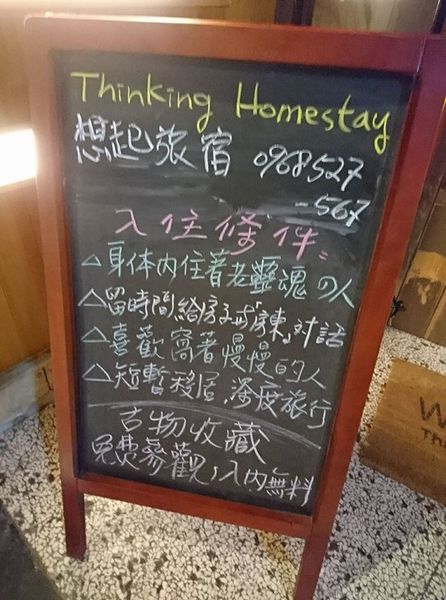 Thinking Homestay
想起旅宿 0968527
-567
入住條件:
△身体内住著老靈魂の人
△留時間給房子或「諫」対話
△喜歡窩著慢慢的人
△短暫移居,深度旅行
古物收藏
免費參觀,入內無料
W
Th